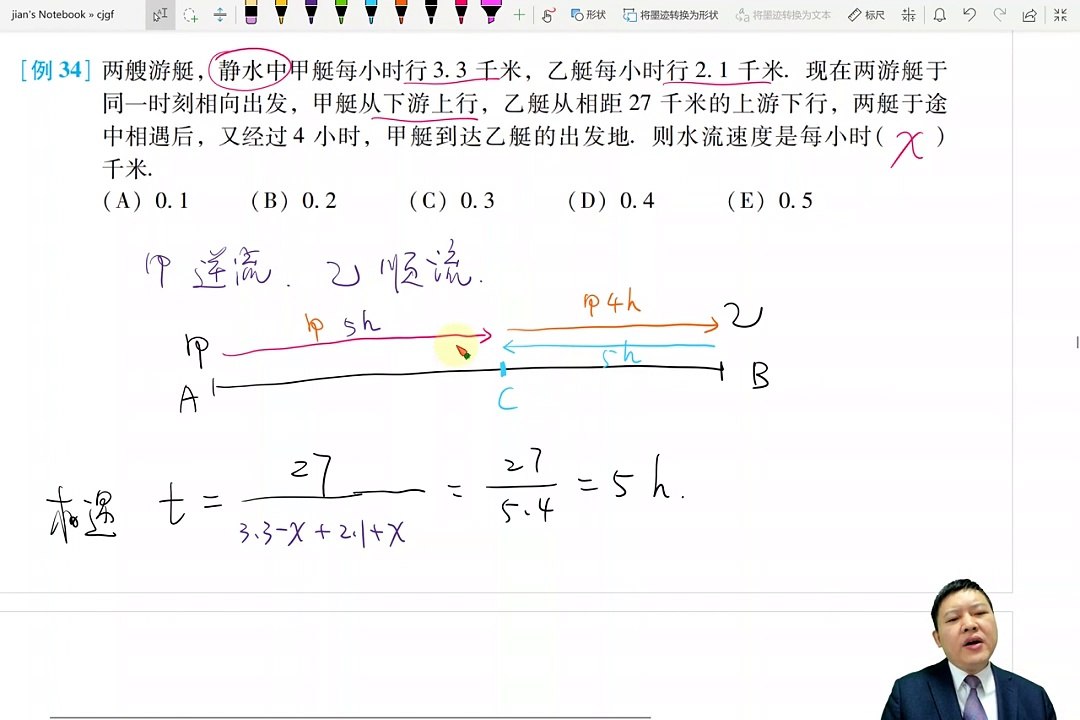 jian's Notebook » cjgf
形状
将墨迹转换为形状
将墨迹转换为文本
标尺
[例 34] 两艘游艇，静水中甲艇每小时行 3.3 千米，乙艇每小时行 2.1 千米. 现在两游艇于
同一时刻相向出发，甲艇从下游上行，乙艇从相距 27 千米的上游下行，两艇于途
中相遇后，又经过 4 小时，甲艇到达乙艇的出发地. 则水流速度是每小时( x )
千米.
(A) 0.1 (B) 0.2 (C) 0.3 (D) 0.4 (E) 0.5
甲 逆流. 乙 顺流.
甲 5h 甲4h 乙
甲 5h
A C B
相遇 t = 27 / 3.3-x+2.1+x = 27 / 5.4 = 5 h.